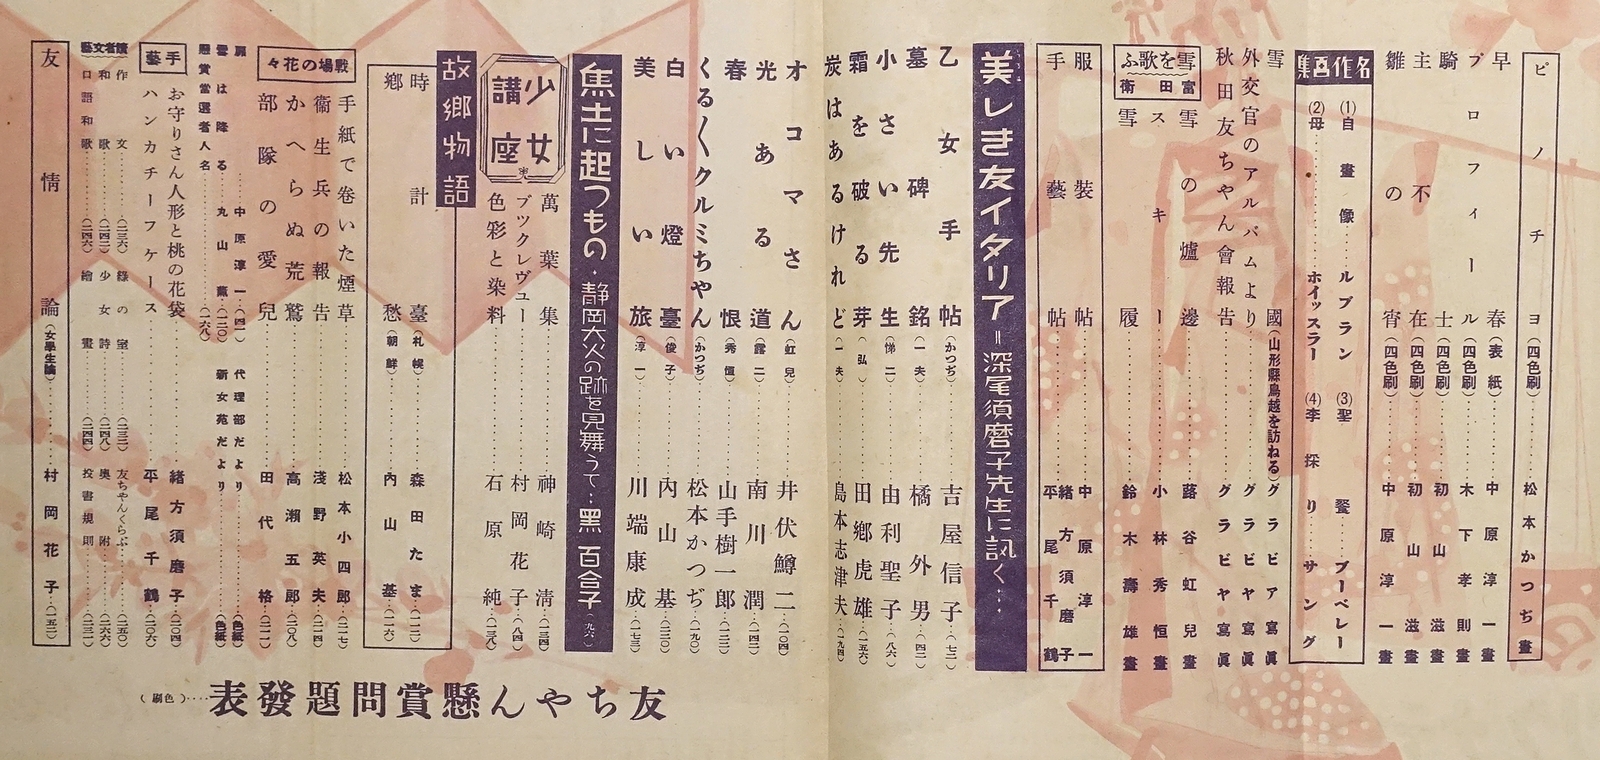 ピノチヨ(四色刷)……松本かつぢ畫
早春(表紙)……中原淳一畫
プロフィール(四色刷)……木下孝則畫
騎士(四色刷)……初山滋畫
主不在(四色刷)……初山滋畫
雛の宵(四色刷)……中原淳一畫
名作画集
(1)自畫像……ルブラン (3)聖餐……ブーベレー
(2)母……ホイッスラー (4)李採り……サンヅ
雪國(山形縣鳥越を訪ねる)グラビア寫眞
外交官のアルバムより……グラビヤ寫眞
秋田友ちやん會報告……グラビヤ寫眞
雪を歌ふ
富田衛
雪の爐邊……蕗谷虹兒畫
スキー……小林秀恒畫
雪履……鈴木壽雄畫
服裝帖……中原淳一
手藝帖……緒方須磨子
平尾千鶴
美しき友イタリア=深尾須磨子先生に訊く…
乙女手帖(かつぢ)……吉屋信子…(七二)
墓碑銘(一夫)……橘外男…(四二)
小さい先生(悌二)……由利聖子…(八六)
霜を破る芽(弘)……田郷虎雄…(五六)
炭はあるけれど(一夫)……島本志津夫…(一九四)
オコマさん(虹兒)……井伏鱒二…(一〇四)
光ある道(露二)……南川潤…(一四二)
春恨(秀恒)……山手樹一郎…(二一二)
くるくクルミちやん(かつぢ)……松本かつぢ…(一九〇)
白い燈臺(俊子)……內山基…(一三〇)
美しい旅(淳一)……川端康成…(一七三)
焦土に起つもの・靜岡大火の跡を見舞うて…黑百合子 九六)
少女講座
萬葉集……神崎清…(一三四)
ブックレヴュー……村岡花子…(八四)
色彩と染料……石原純…(一三八)
故郷物語
時計臺(札幌)……森田たま…(一二二)
鄉愁(朝鮮)……內山基…(一一六)
戰場の花々
手紙で卷いた煙草……松本小四郎…(二一七)
衞生兵の報告……淺野英夫…(二一四)
かへらぬ荒鷲……高瀬五郎…(二〇八)
部隊の愛兒……田代格…(二一一)
扉……中原淳一…(四一) 代理部だより……(色紙)
雪は降る……丸山薫…(一二〇) 新女苑だより……(色紙)
懸賞當選者人名……(一六八)
手藝
お守りさん人形と桃の花袋……緒方須磨子…(二〇四)
ハンカチーフケース……平尾千鶴…(二〇六)
讀者文藝
作文……(二三六) 綠の室……(二三二) 友ちやんくらぶ……(二五〇)
和歌……(二四二) 少女詩……(二四八) 奥附……(二六六)
口語和歌……(二四六) 繪畫……(二四四) 投書規則……(二三一)
友情論(女學生論)……村岡花子…(一五二)
友ちやん懸賞問題發表…(色刷)